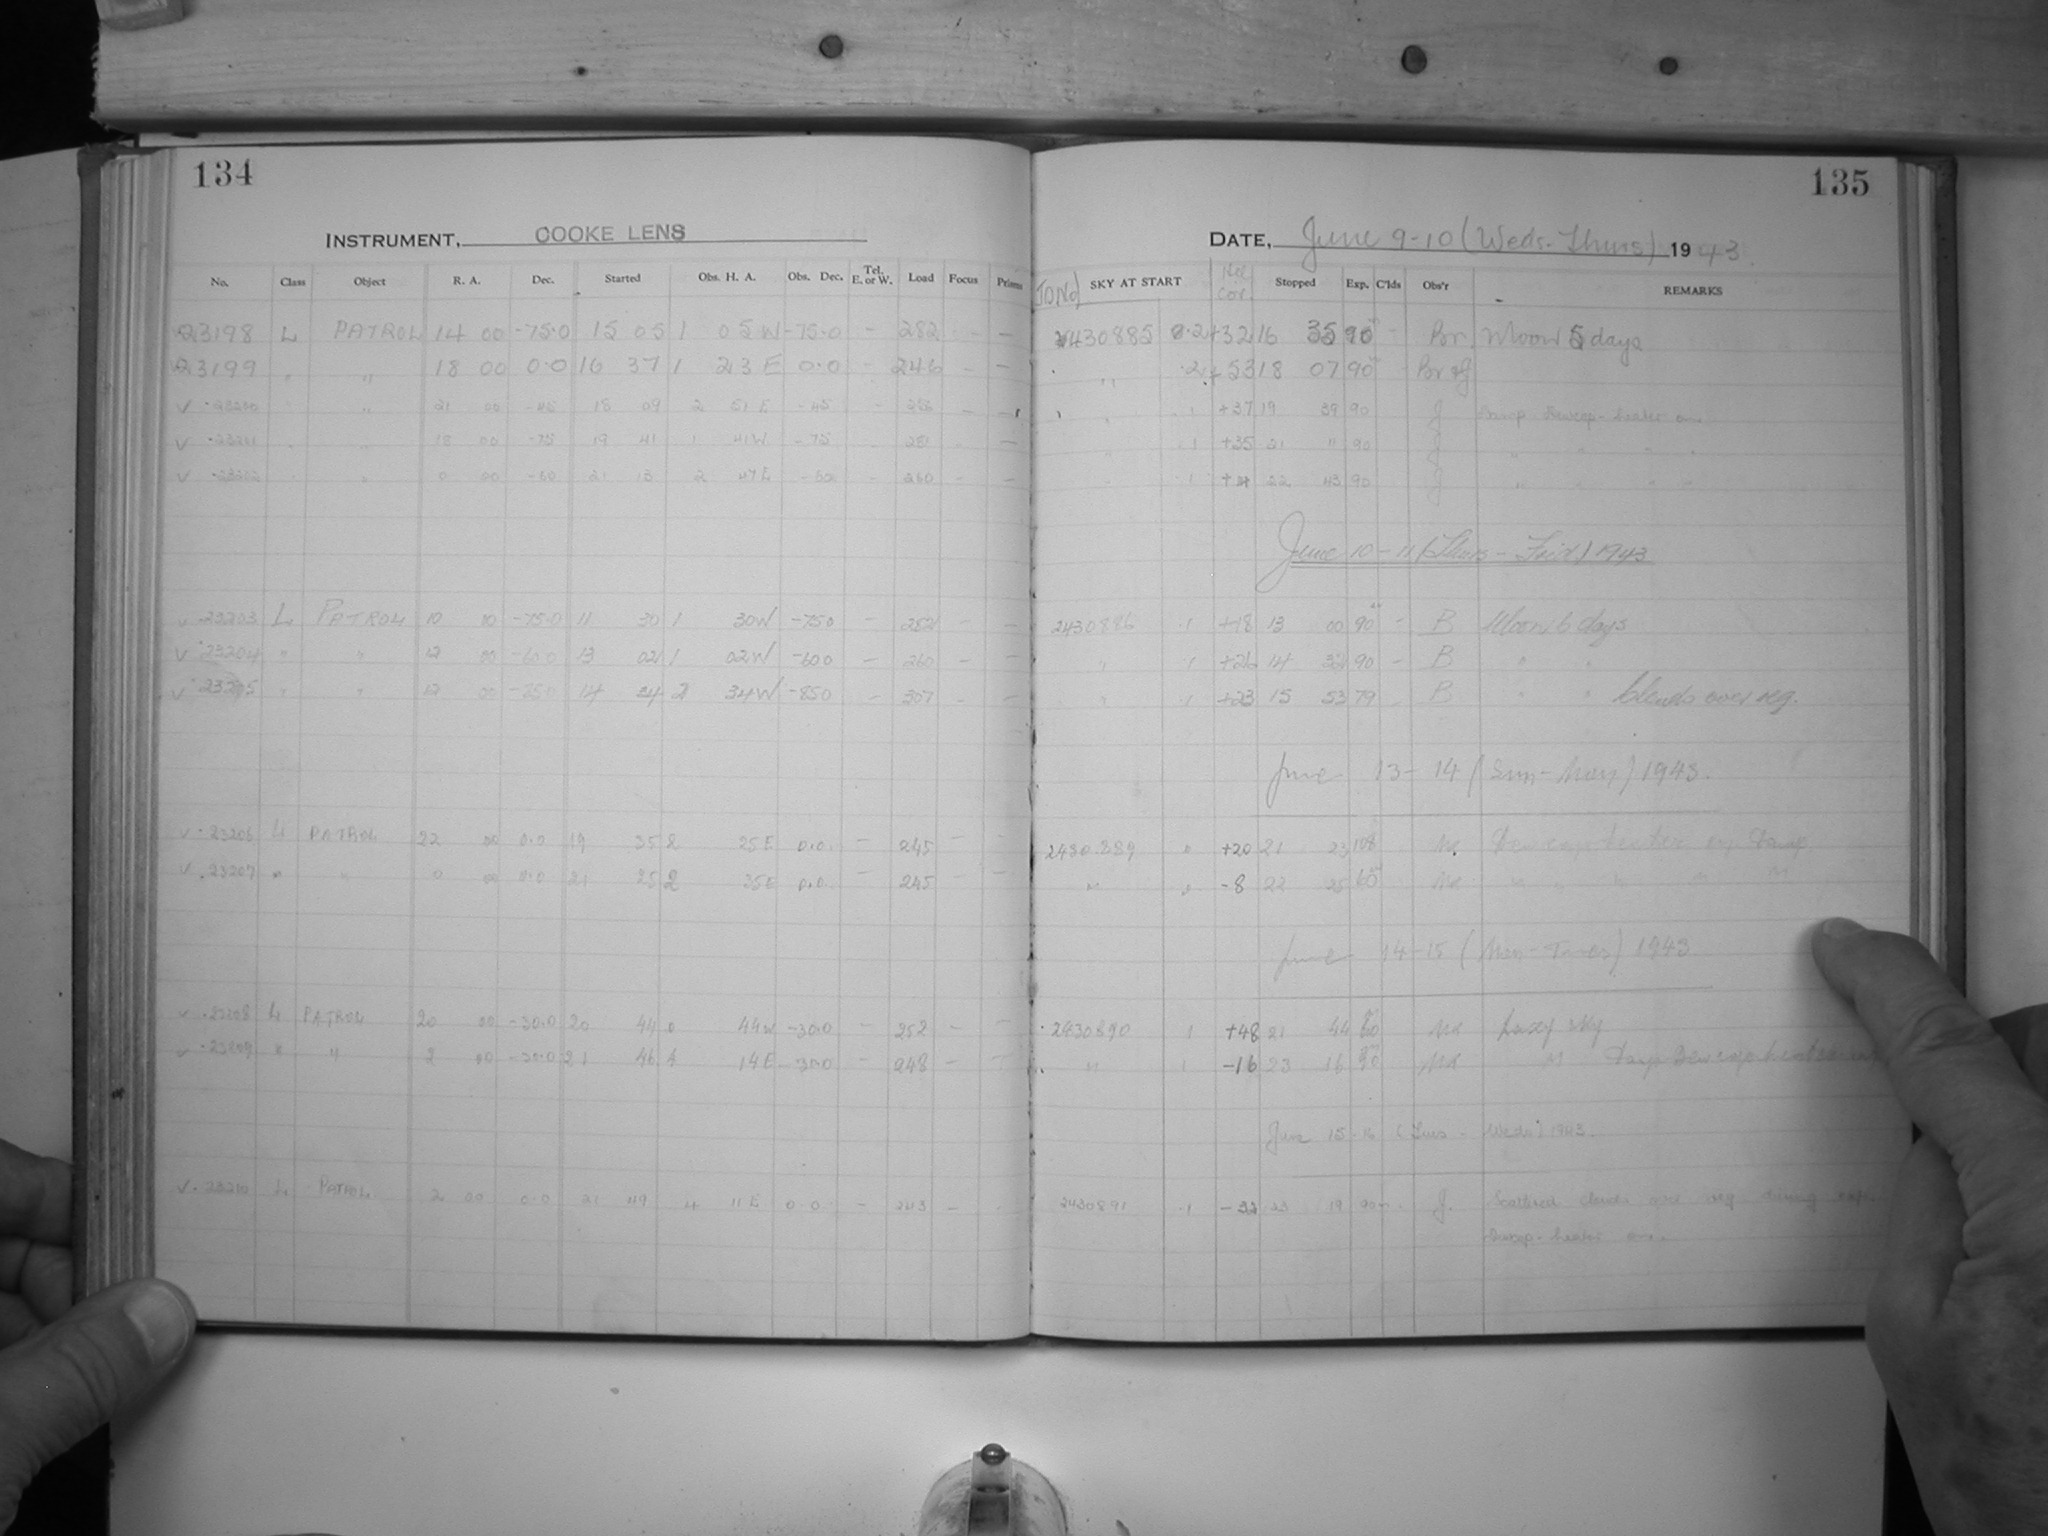 134
135
INSTRUMENT, COOKE LENS
DATE, June 9-10 (Weds-Thurs) 1943.
No. Class Object R. A. Dec. Started Obs. H. A. Obs. Dec. Tel. E. or W. Load Focus Prisms
JD No SKY AT START Stopped Exp. C'lds Obs'r REMARKS
23198 L PATROL 14 00 -75.0 15 05 1 05 W -75.0 - 282 - - 2430885 +32 16 35 90 - Br Moon 5 days
23199 " " 18 00 0.0 16 37 1 23 E 0.0 - 246 - - " .2 +53 18 07 90 - Br
23200 " 21 00 -45 18 09 2 51 E -45 - - - " .1 +37 19 39 90 J Dewcap-heater on.
23201 " 18 00 -75 19 41 1 41 W -75 - - " .1 +35 21 11 90 J " " " "
23202 " 0 00 -60 21 13 2 47 E - 260 - - " .1 22 43 90 J " " " "
June 10-11 (Thurs-Frid) 1943
23203 L PATROL 10 10 -75.0 11 30 1 30 W -75.0 - 252 - - 2430886 .1 +18 13 00 90 - B Moon 6 days
23204 " " 12 00 -60.0 13 02 1 02 W -60.0 - 260 - - " .1 +26 14 32 90 - B " "
23205 " " 12 00 14 34 2 34 W -85.0 - 307 - - " .1 +23 15 53 79 - B " " clouds over reg.
June 13-14 (Sun-Mon) 1943.
23206 L PATROL 22 00 0.0 19 35 2 25 E 0.0. - 245 - - 2430889 0 +20 21 23 108 MK Dewcap heater on, Damp
23207 " " 0 00 0.0 21 25 2 35 E 0.0. - 245 - - " 0 -8 22 25 60 MK " " " " "
June 14-15 (Mon-Tues) 1943
23208 L PATROL 20 00 -30.0 20 44 0 44 W -30.0 - 252 - - 2430890 1 +48 21 44 60 MK hazy sky
23209 " " 2 00 -30.0 21 46 4 14 E -30.0 - 248 - - " 1 -16 23 16 90 MK " Damp Dewcap heater on
June 15-16 (Tues - Weds) 1943.
23210 L PATROL 2 00 0.0 21 49 4 11 E 0.0 - 243 - - 2430891 .1 -32 23 19 90 J. Scattered clouds over reg during exp.
Dewcap-heater on.